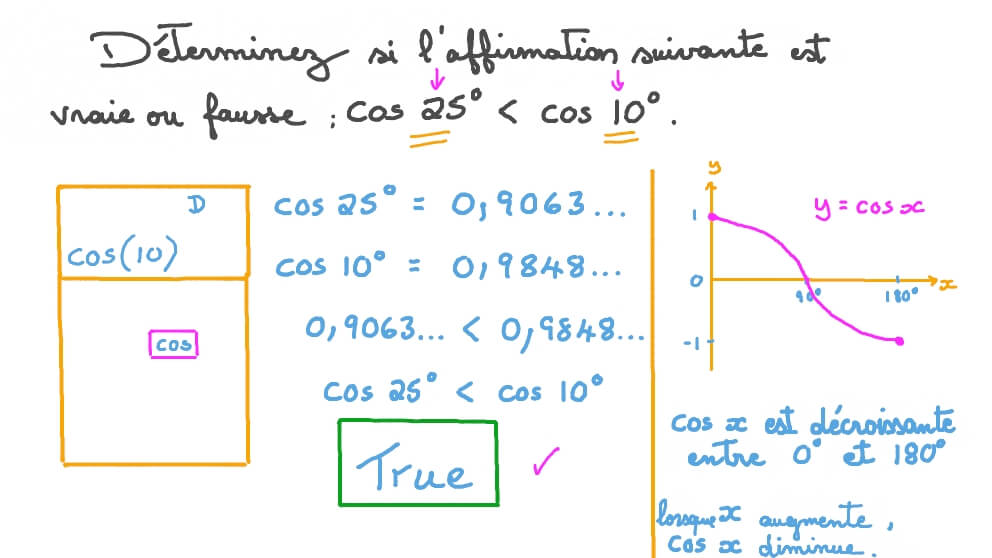 Déterminez si l'affirmation suivante est
vraie ou fausse : cos 25° < cos 10°.
D
cos(10)
cos
cos 25° = 0,9063...
cos 10° = 0,9848...
0,9063... < 0,9848...
cos 25° < cos 10°
True
y
y = cos x
1
0
90°
180°
x
-1
cos x est décroissante
entre 0° et 180°
lorsque x augmente,
cos x diminue.